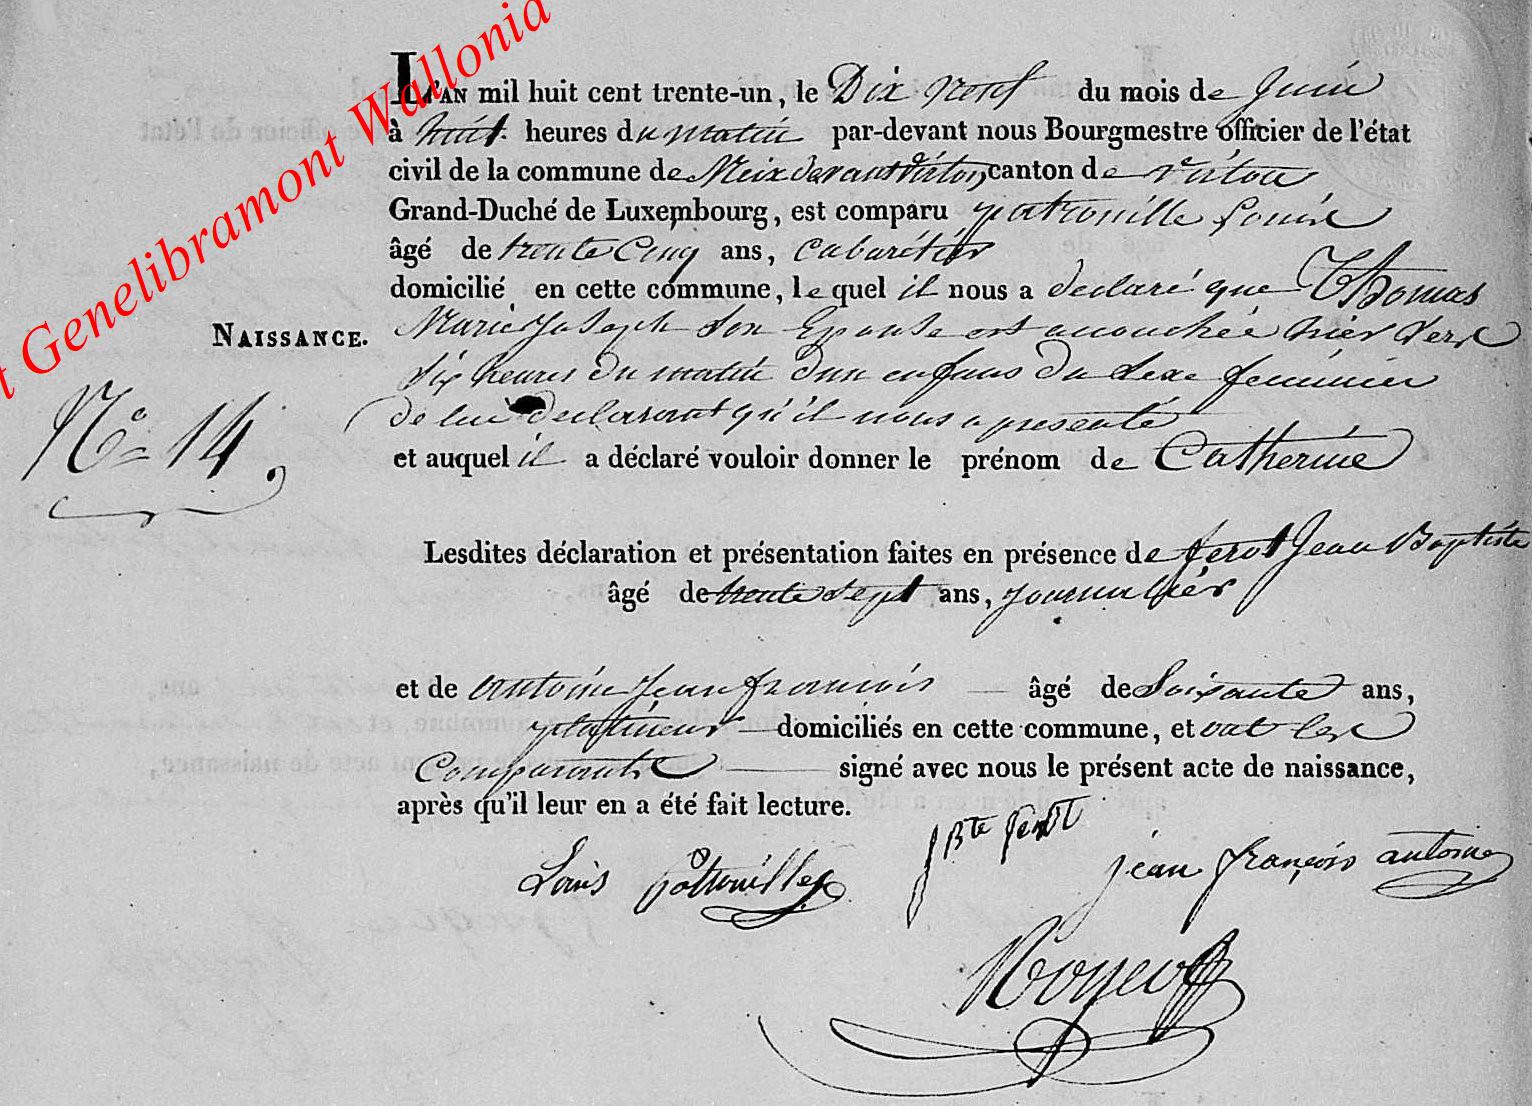 Genelibramont Wallonia
L'AN mil huit cent trente-un, le Dix neuf du mois de Juin
à huit heures du matin par-devant nous Bourgmestre officier de l'état
civil de la commune de Meix devant Virton canton de virton
Grand-Duché de Luxembourg, est comparu patrouille Louis
âgé de trente Cinq ans, Cabarétier
domicilié en cette commune, lequel il nous a déclaré que Thomas
NAISSANCE.
Marie Joseph son Epouse est accouchée hier vers
dix heures du matin d'un enfans du sexe feminin
N° 14.
de lui declarant qu'il nous a presenté
et auquel il a déclaré vouloir donner le prénom de Catherine
Lesdites déclaration et présentation faites en présence de ferot Jean Baptiste
âgé de trente sept ans, journalier
et de antoine Jean francois âgé de Soixante ans,
platineur domiciliés en cette commune, et ont les
Comparants signé avec nous le présent acte de naissance,
après qu'il leur en a été fait lecture.
Louis Pâtrouille
J Bte ferot
jean françois antoine